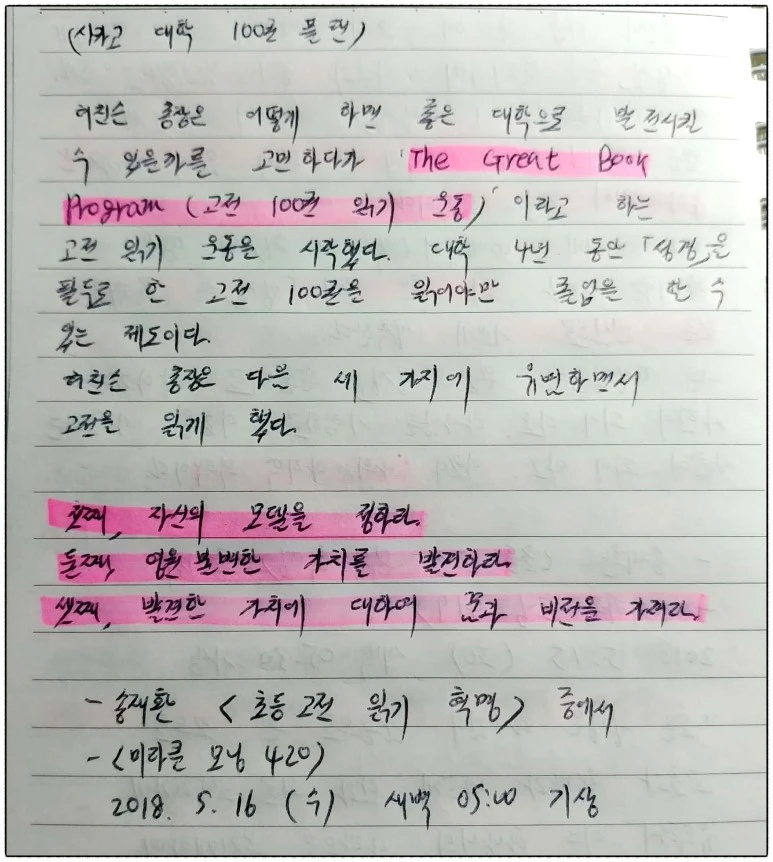 (시카고 대학 100권 플랜)
허친슨 총장은 어떻게 하면 좋은 대학으로 발전시킬
수 있을까를 고민하다가 'The Great Book
Program (고전 100권 읽기 운동)' 이라고 하는
고전 읽기 운동을 시작했다. 대학 4년 동안 「성경」을
필두로 한 고전 100권을 읽어야만 졸업을 할 수
있는 제도이다.
허친슨 총장은 다음 세 가지에 유념하면서
고전을 읽게 했다.
첫째, 자신의 모델을 정하라.
둘째, 영원 불변한 가치를 발견하라.
셋째, 발견한 가치에 대하여 꿈과 비전을 가져라.
- 송재환 <초등 고전 읽기 혁명> 중에서
- <미라클 모닝 420>
2018. 5. 16 (수) 새벽 05:00 기상